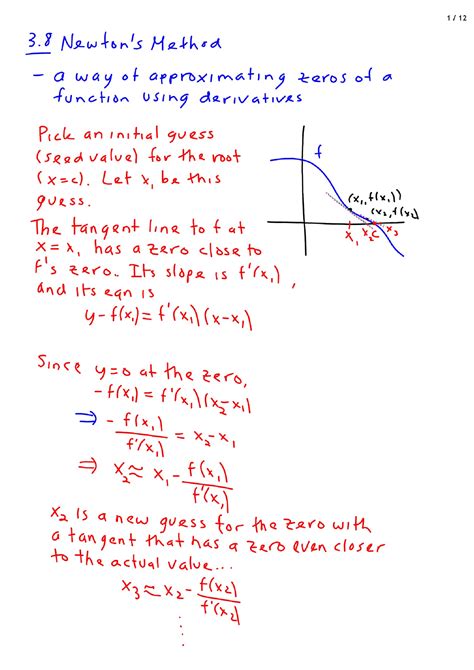 1 / 12
3.8 Newton's Method
- a way of approximating zeros of a
function using derivatives
Pick an initial guess
(seed value) for the root
(x=c). Let x₁ be this
guess.
f
(x₁, f(x₁))
(x₂, f(x₂)
x₁ x₂ c x₃
The tangent line to f at
x = x₁ has a zero close to
f's zero.. Its slope is f'(x₁),
and its eqn is
y-f(x₁) = f'(x₁)(x-x₁)
Since y=0 at the zero,
-f(x₁) = f'(x₁)(x₂-x₁)
⇒ - f(x₁)/f'(x₁) = x₂-x₁
⇒ x₂ ≈ x₁ - f(x₁)/f'(x₁)
x₂ is a new guess for the zero with
a tangent that has a zero even closer
to the actual value...
x₃ ≈ x₂ - f(x₂)/f'(x₂)
⋮